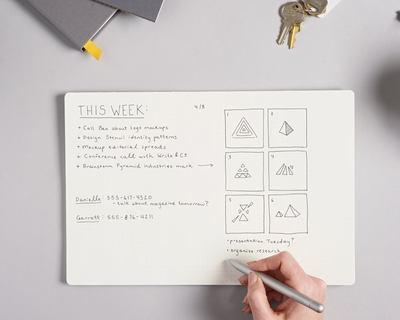 THIS WEEK:
4/8
+ Call Ben about logo mockups
+ Design Stencil identity patterns
+ Mockup editorial spreads
+ Conference call with Write & Co
+ Brainstorm Pyramid industries mark →
Danielle: 555-617-9320
- talk about magazine tomorrow?
Garrett: 555-876-4211
1
2
3
4
5
6
• presentation Tuesday?
• organize research